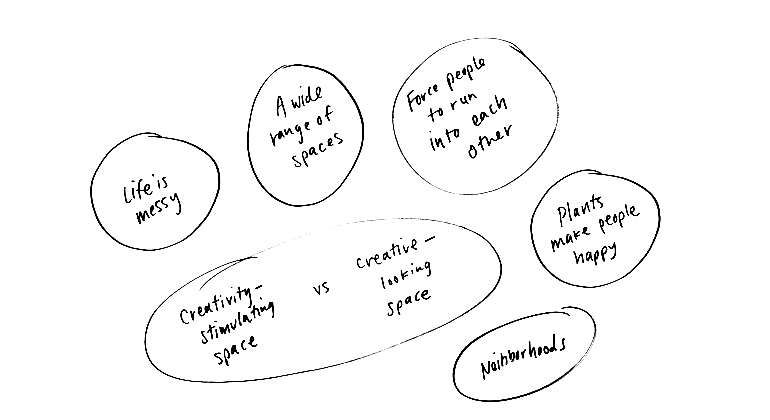 Life is
messy
A wide
range of
spaces
Force people
to run
into each
other
Plants
make people
happy
Creativity-
stimulating
space
vs
Creative-
looking
space
Neihborhoods